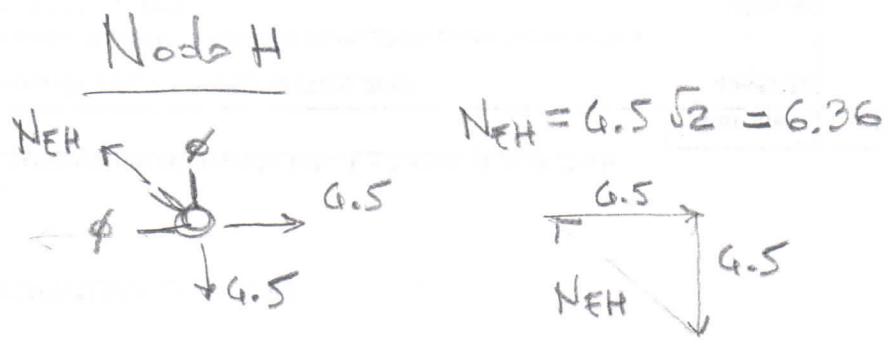 Nodo H
NEH
ø
4.5
ø
4.5
NEH = 4.5 √2 = 6.36
4.5
4.5
NEH